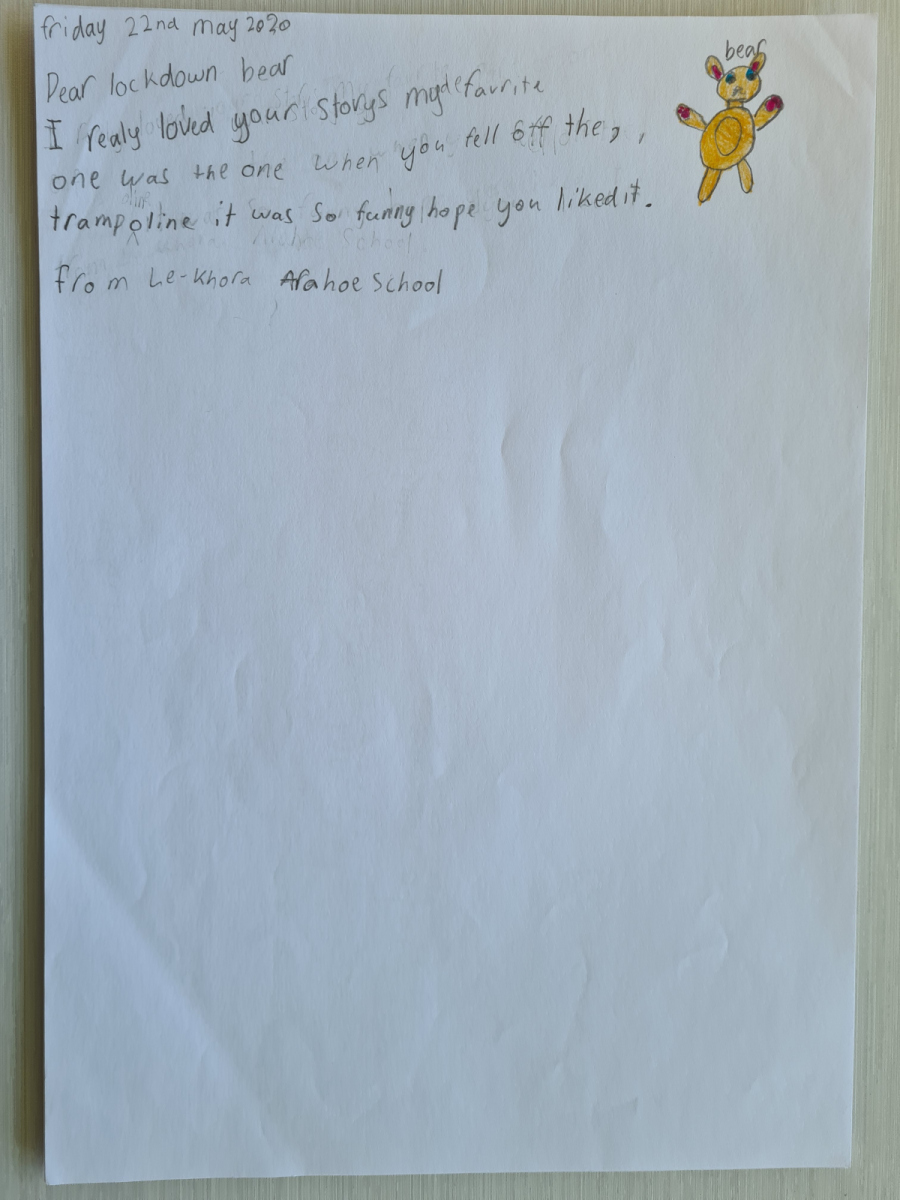 friday 22nd may 2020
bear
Dear lockdown bear
I realy loved your storys my favrite
one was the one when you fell off the,,
trampoline it was so funny hope you liked it.
from Le-Khora Arahoe School